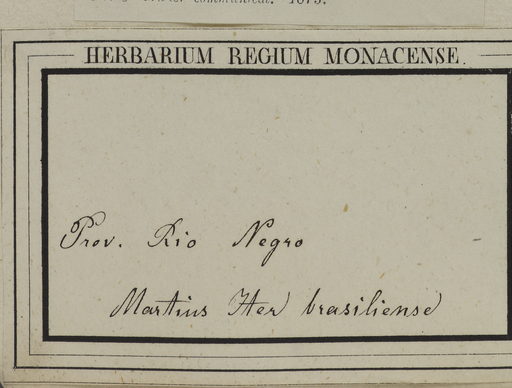 communicat. 1875.
HERBARIUM REGIUM MONACENSE.
Prov. Rio Negro
Martius Iter brasiliense